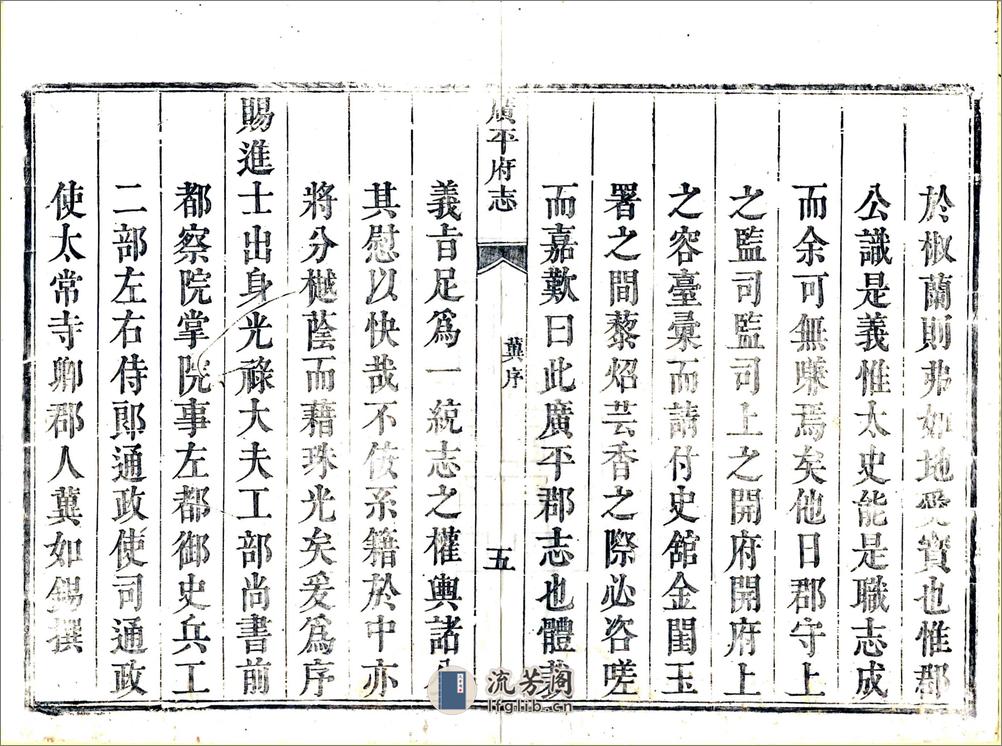 於椒蘭則弗如地愛寶也惟郡
公識是義惟太史能是職志成
而余可無噤焉矣他日郡守上
之監司監司上之開府開府上
之容臺彙而請付史舘金閨玉
署之間藜炤芸香之際必咨嗟
而嘉歎曰此廣平郡志也體裁
廣平府志
冀序
五
義㫖足爲一統志之權輿諸
其慰以快哉不佞系籍於中亦
將分樾蔭而藉珠光矣爰爲序
賜進士出身光祿大夫工部尚書前
都察院掌院事左都御史兵工
二部左右侍郎通政使司通政
使太常寺卿郡人冀如錫撰
流芳阁
lfglib.cn